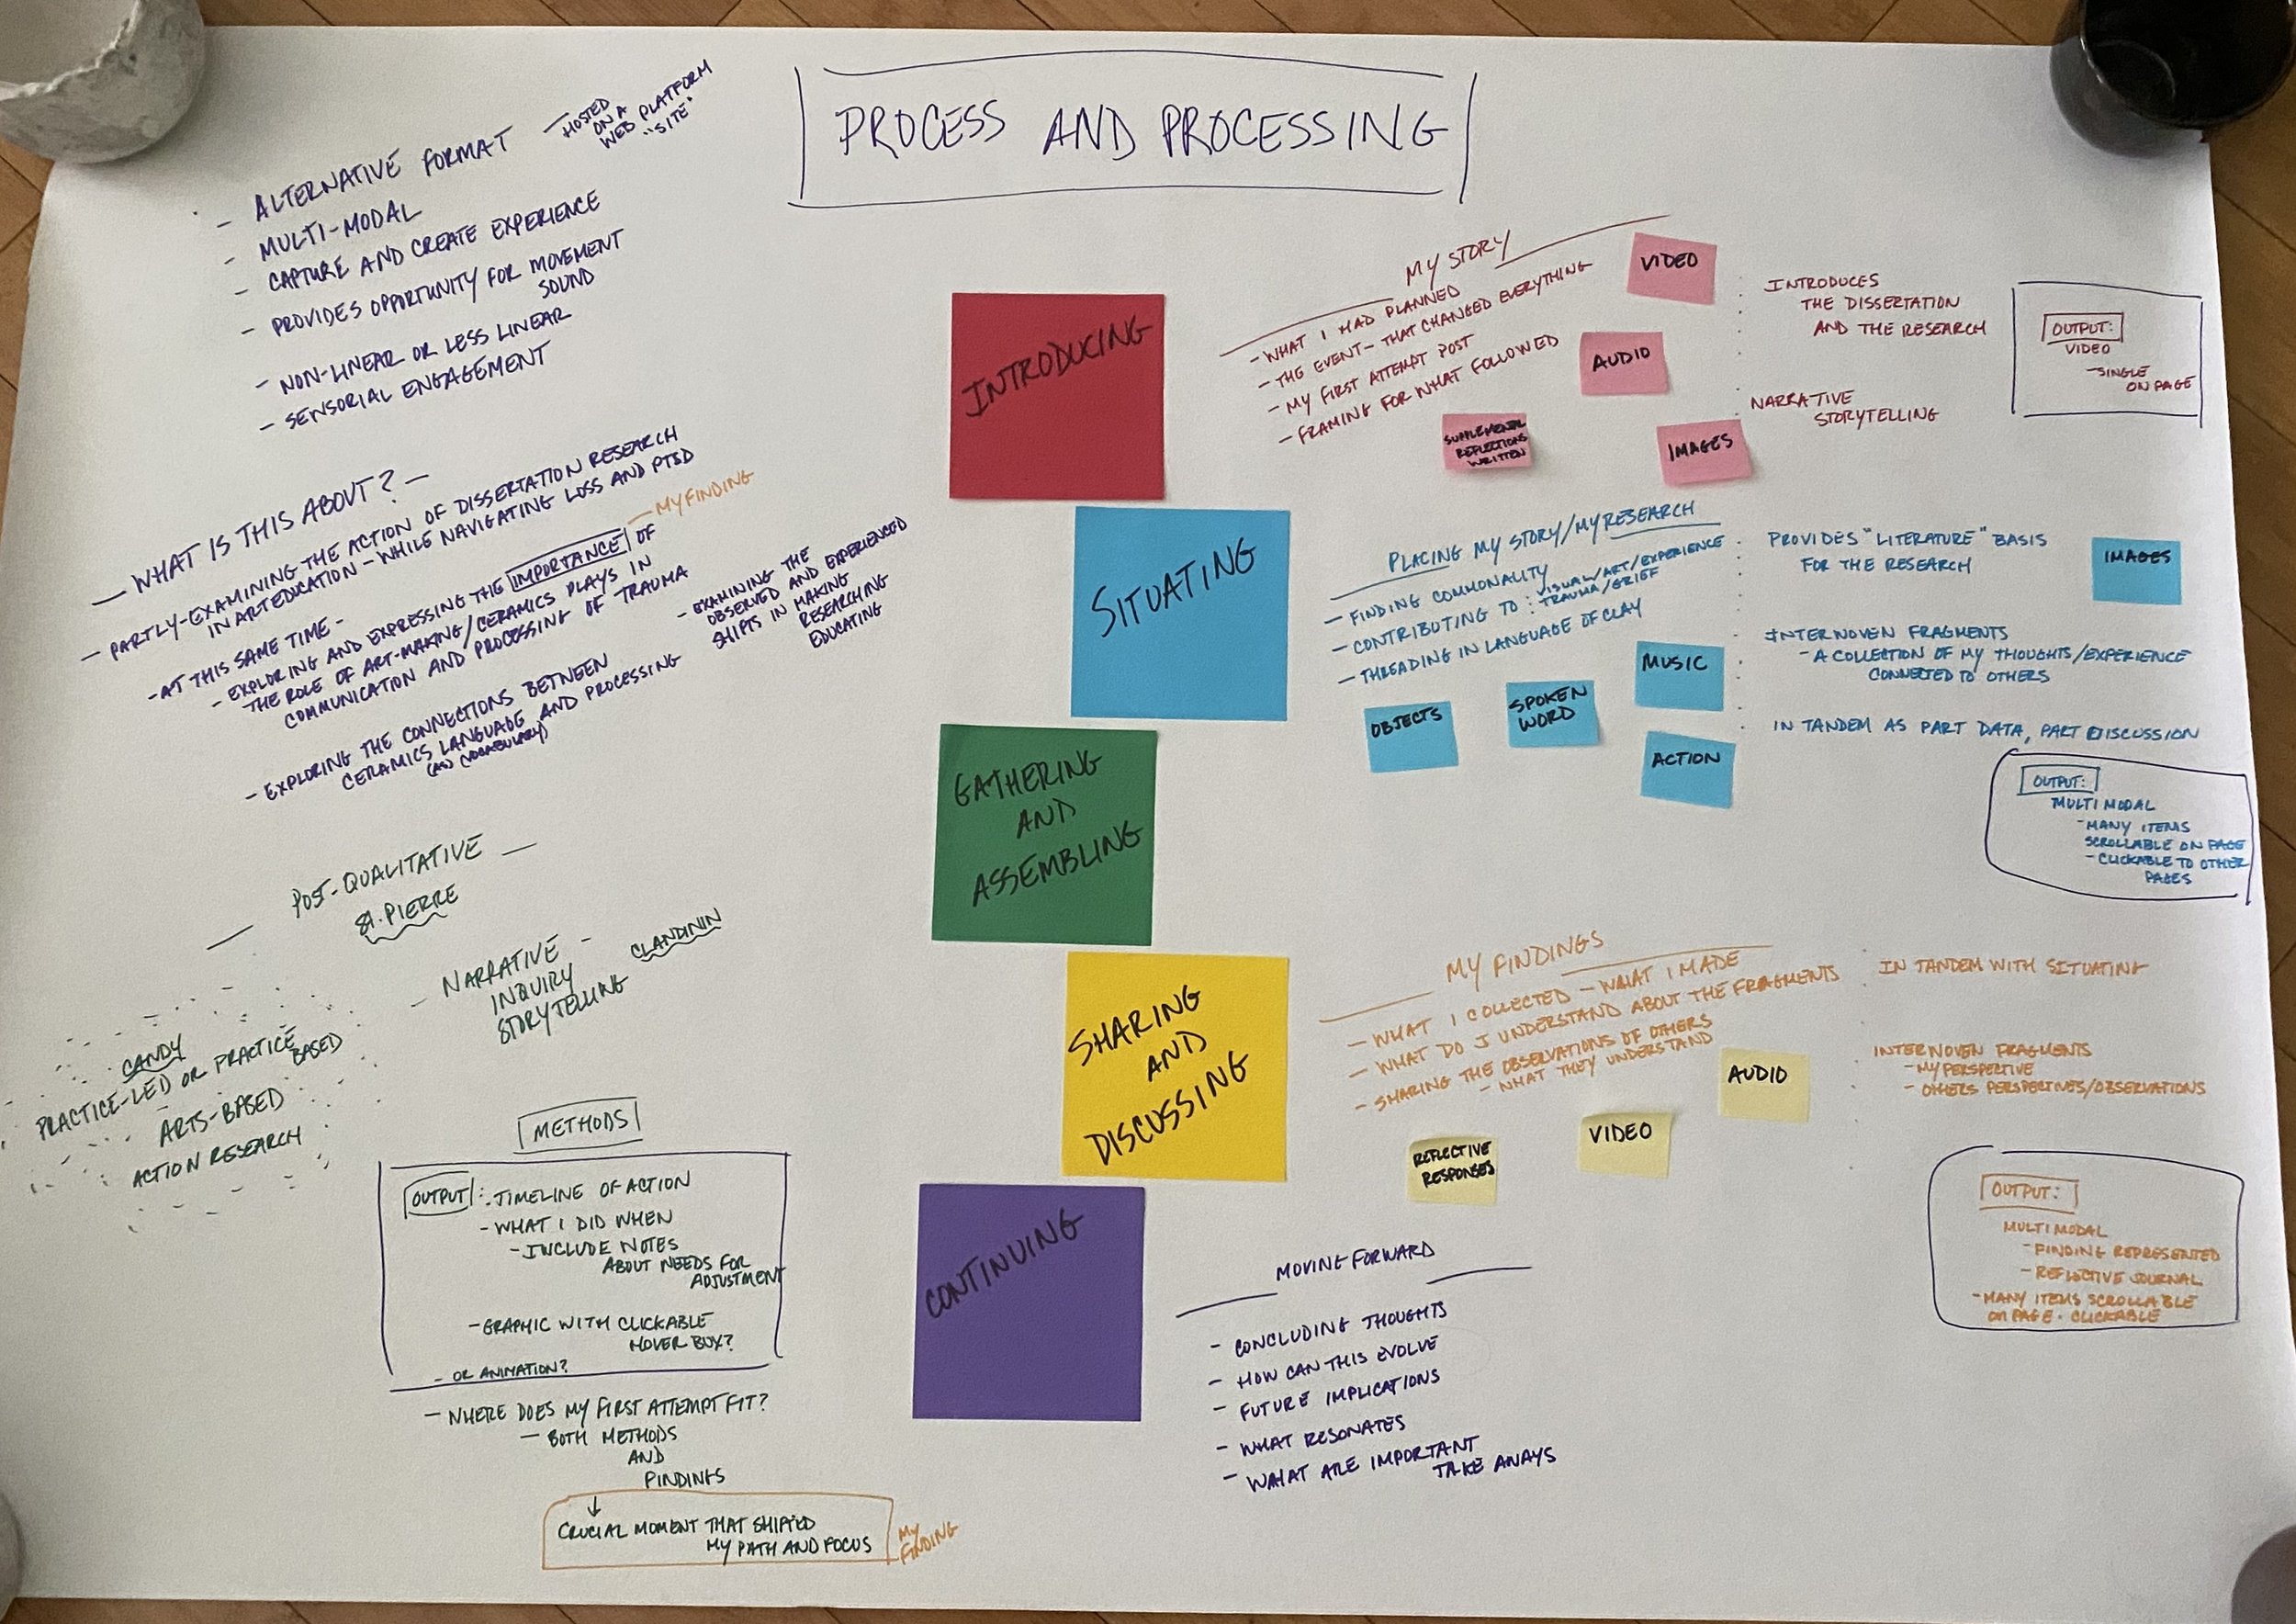 PROCESS AND PROCESSING
- ALTERNATIVE FORMAT - HOSTED
ON A
WEB PLATFORM
"SITE"
- MULTI-MODAL
- CAPTURE AND CREATE EXPERIENCE
- PROVIDES OPPORTUNITY FOR MOVEMENT
SOUND
- NON-LINEAR OR LESS LINEAR
- SENSORIAL ENGAGEMENT
- WHAT IS THIS ABOUT? -
- PARTLY-EXAMINING THE ACTION OF DISSERTATION RESEARCH
IN ART EDUCATION - WHILE NAVIGATING LOSS AND PTSD
- AT THIS SAME TIME -
- EXPLORING AND EXPRESSING THE IMPORTANCE OF
- MY FINDING
THE ROLE OF ART-MAKING/CERAMICS PLAYS IN
COMMUNICATION AND PROCESSING OF TRAUMA
- EXPLORING THE CONNECTIONS BETWEEN
CERAMICS LANGUAGE AND PROCESSING
(AS) (VOCABULARY)
- EXAMINING THE
OBSERVED AND EXPERIENCED
SHIFTS IN MAKING
RESEARCHING
EDUCATING
POST-QUALITATIVE -
- ST. PIERRE
- NARRATIVE -
INQUIRY
STORYTELLING
CLANDININ
CANDY
PRACTICE-LED OR PRACTICE
BASED
ARTS-BASED
ACTION RESEARCH
METHODS
OUTPUT: TIMELINE OF ACTION
- WHAT I DID WHEN
- INCLUDE NOTES
ABOUT NEEDS FOR
ADJUSTMENT
- GRAPHIC WITH CLICKABLE
HOVER BOX?
- OR ANIMATION?
- WHERE DOES MY FIRST ATTEMPT FIT?
- BOTH METHODS
AND
FINDINGS
↓
CRUCIAL MOMENT THAT SHIFTED
MY PATH AND FOCUS
MY
FINDING
INTRODUCING
MY STORY
- WHAT I HAD PLANNED
- THE EVENT - THAT CHANGED EVERYTHING
- MY FIRST ATTEMPT POST
- FRAMING FOR WHAT FOLLOWED
VIDEO
AUDIO
SUPPLEMENTAL
REFLECTIONS
WRITTEN
IMAGES
INTRODUCES
THE DISSERTATION
AND THE RESEARCH
NARRATIVE
STORYTELLING
OUTPUT:
VIDEO
- SINGLE
ON PAGE
SITUATING
PLACING MY STORY/MY RESEARCH
- FINDING COMMONALITY
- CONTRIBUTING TO: VISUAL/ART/EXPERIENCE
TRAUMA/GRIEF
- THREADING IN LANGUAGE OF CLAY
OBJECTS
SPOKEN
WORD
MUSIC
ACTION
IMAGES
PROVIDES "LITERATURE" BASIS
FOR THE RESEARCH
INTERWOVEN FRAGMENTS
- A COLLECTION OF MY THOUGHTS/EXPERIENCE
CONNECTED TO OTHERS
IN TANDEM AS PART DATA, PART DISCUSSION
OUTPUT:
MULTI MODAL
- MANY ITEMS
SCROLLABLE ON PAGE
- CLICKABLE TO OTHER
PAGES
GATHERING
AND
ASSEMBLING
SHARING
AND
DISCUSSING
MY FINDINGS
- WHAT I COLLECTED - WHAT I MADE
- WHAT DO I UNDERSTAND ABOUT THE FRAGMENTS
- SHARING THE OBSERVATIONS OF OTHERS
- WHAT THEY UNDERSTAND
REFLECTIVE
RESPONSES
VIDEO
AUDIO
IN TANDEM WITH SITUATING
INTERWOVEN FRAGMENTS
- MY PERSPECTIVE
- OTHERS PERSPECTIVES/OBSERVATIONS
OUTPUT:
MULTI MODAL
- FINDING REPRESENTED
- REFLECTIVE JOURNAL
- MANY ITEMS SCROLLABLE
ON PAGE. CLICKABLE
CONTINUING
MOVING FORWARD
- CONCLUDING THOUGHTS
- HOW CAN THIS EVOLVE
- FUTURE IMPLICATIONS
- WHAT RESONATES
- WHAT ARE IMPORTANT
TAKE AWAYS